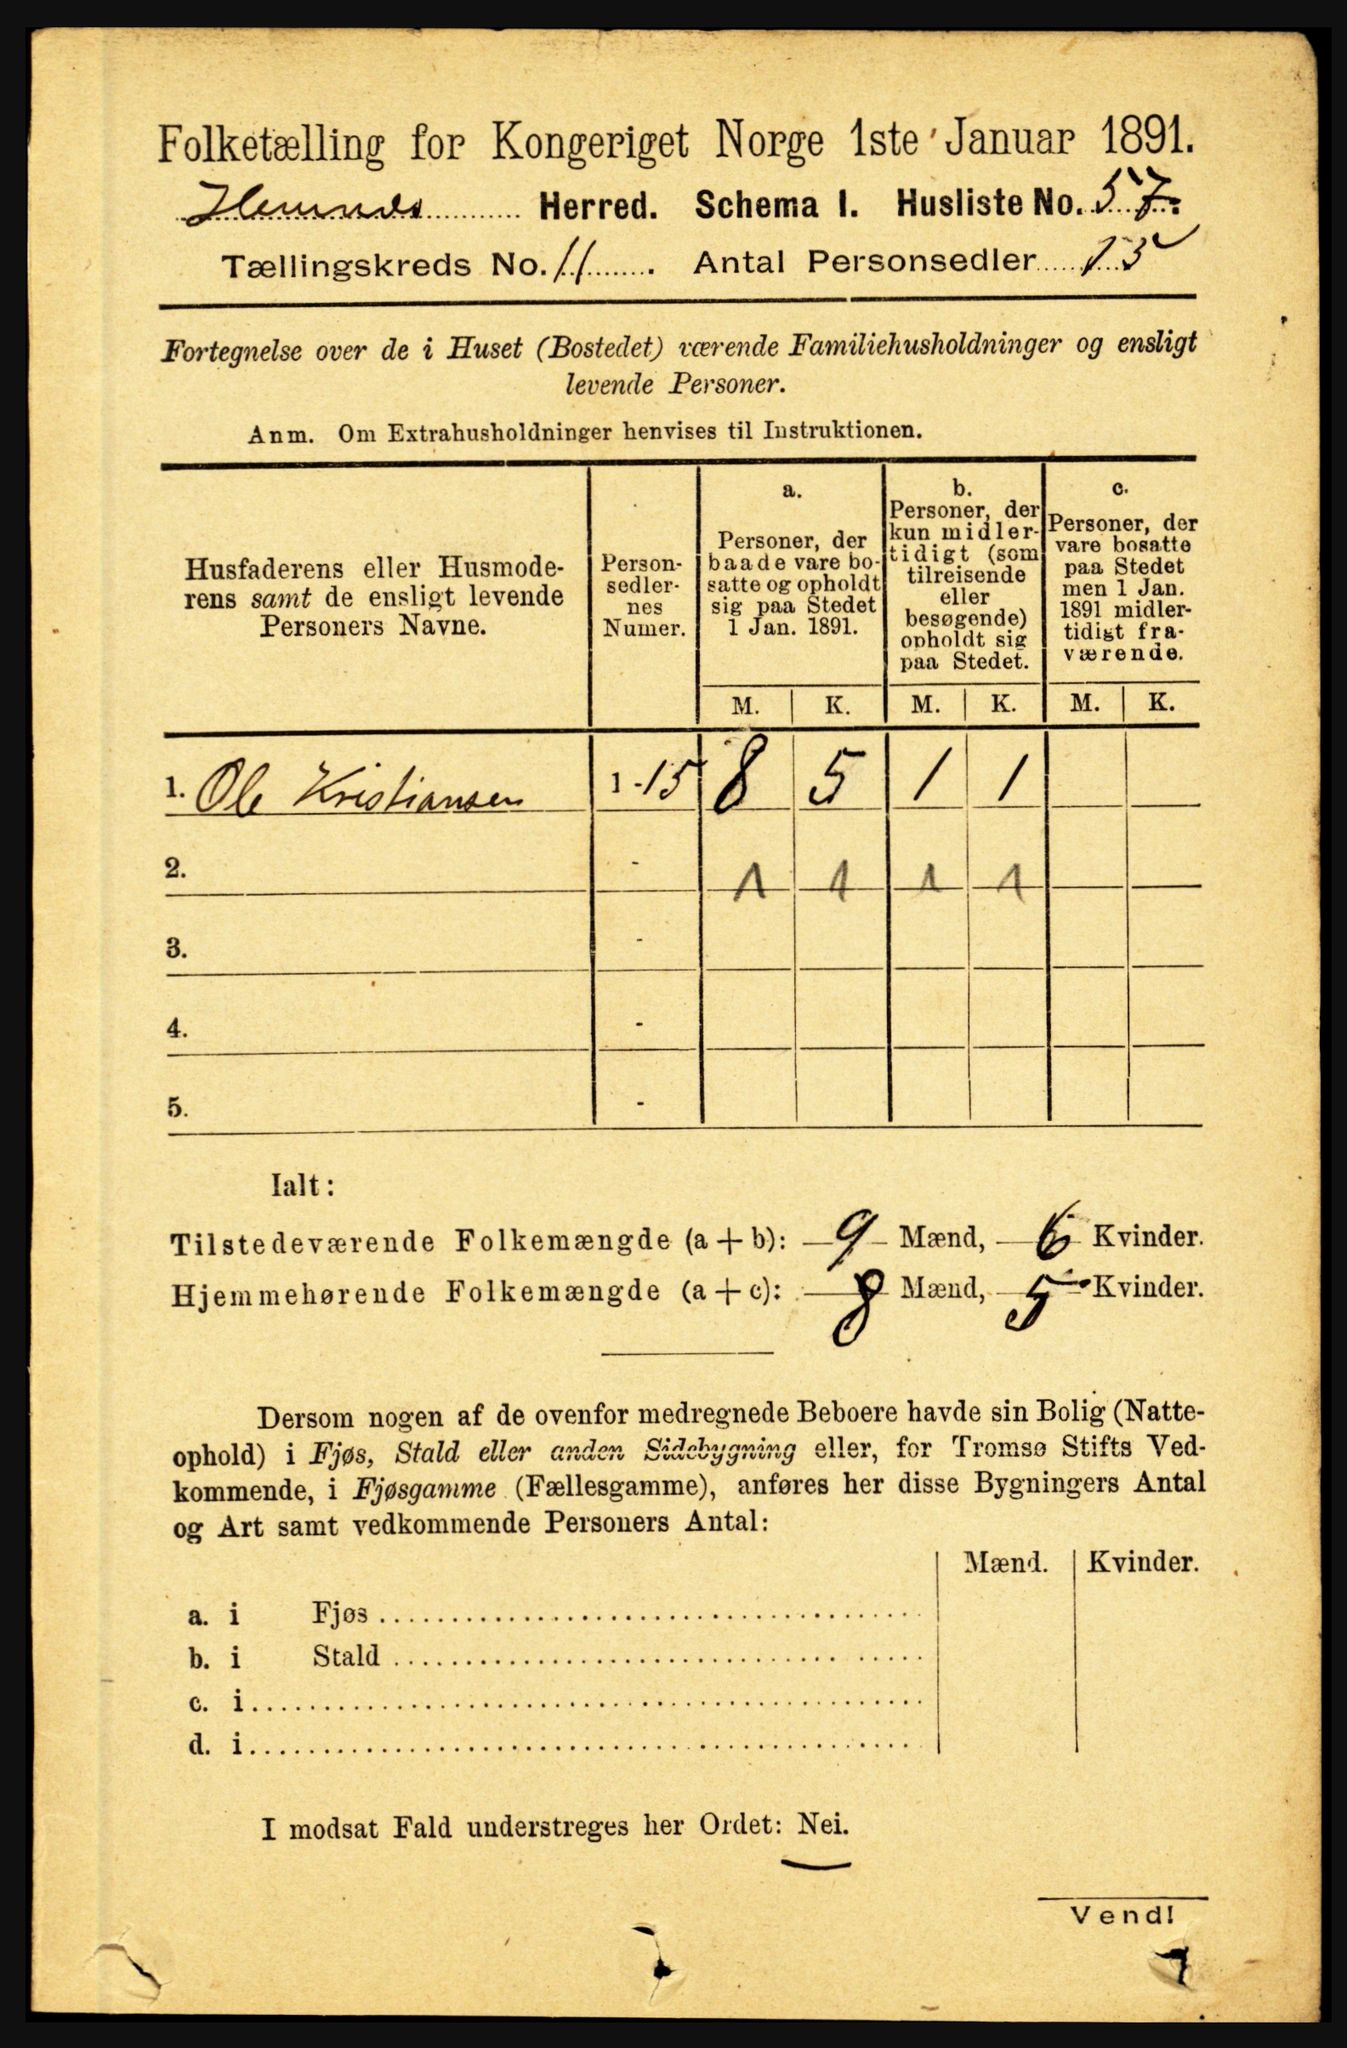 Folketælling for Kongeriget Norge 1ste Januar 1891.
Hemnes Herred. Schema I. Husliste No. 57.
Tællingskreds No. 11. Antal Personsedler 15
Fortegnelse over de i Huset (Bostedet) værende Familiehusholdninger og ensligt
levende Personer.
Anm. Om Extrahusholdninger henvises til Instruktionen.
Husfaderens eller Husmode-
rens samt de ensligt levende
Personers Navne.
Person-
sedler-
nes
Numer.
a.
Personer, der
baade vare bo-
satte og opholdt
sig paa Stedet
1 Jan. 1891.
b.
Personer, der
kun midler-
tidigt (som
tilreisende
eller
besøgende)
opholdt sig
paa Stedet.
c.
Personer, der
vare bosatte
paa Stedet
men 1 Jan.
1891 midler-
tidigt fra-
værende.
M. K. M. K. M. K.
1. Ole Kristiansen 1-15 8 5 1 1
2. - 1 1 1 1
3. -
4. -
5. -
Ialt:
Tilstedeværende Folkemængde (a+b): 9 Mænd, 6 Kvinder.
Hjemmehørende Folkemængde (a+c): 8 Mænd, 5 Kvinder.
Dersom nogen af de ovenfor medregnede Beboere havde sin Bolig (Natte-
ophold) i Fjøs, Stald eller anden Sidebygning eller, for Tromsø Stifts Ved-
kommende, i Fjøsgamme (Fællesgamme), anføres her disse Bygningers Antal
og Art samt vedkommende Personers Antal:
Mænd. Kvinder.
a. i Fjøs
b. i Stald
c. i
d. i
I modsat Fald understreges her Ordet: Nei.
Vend!